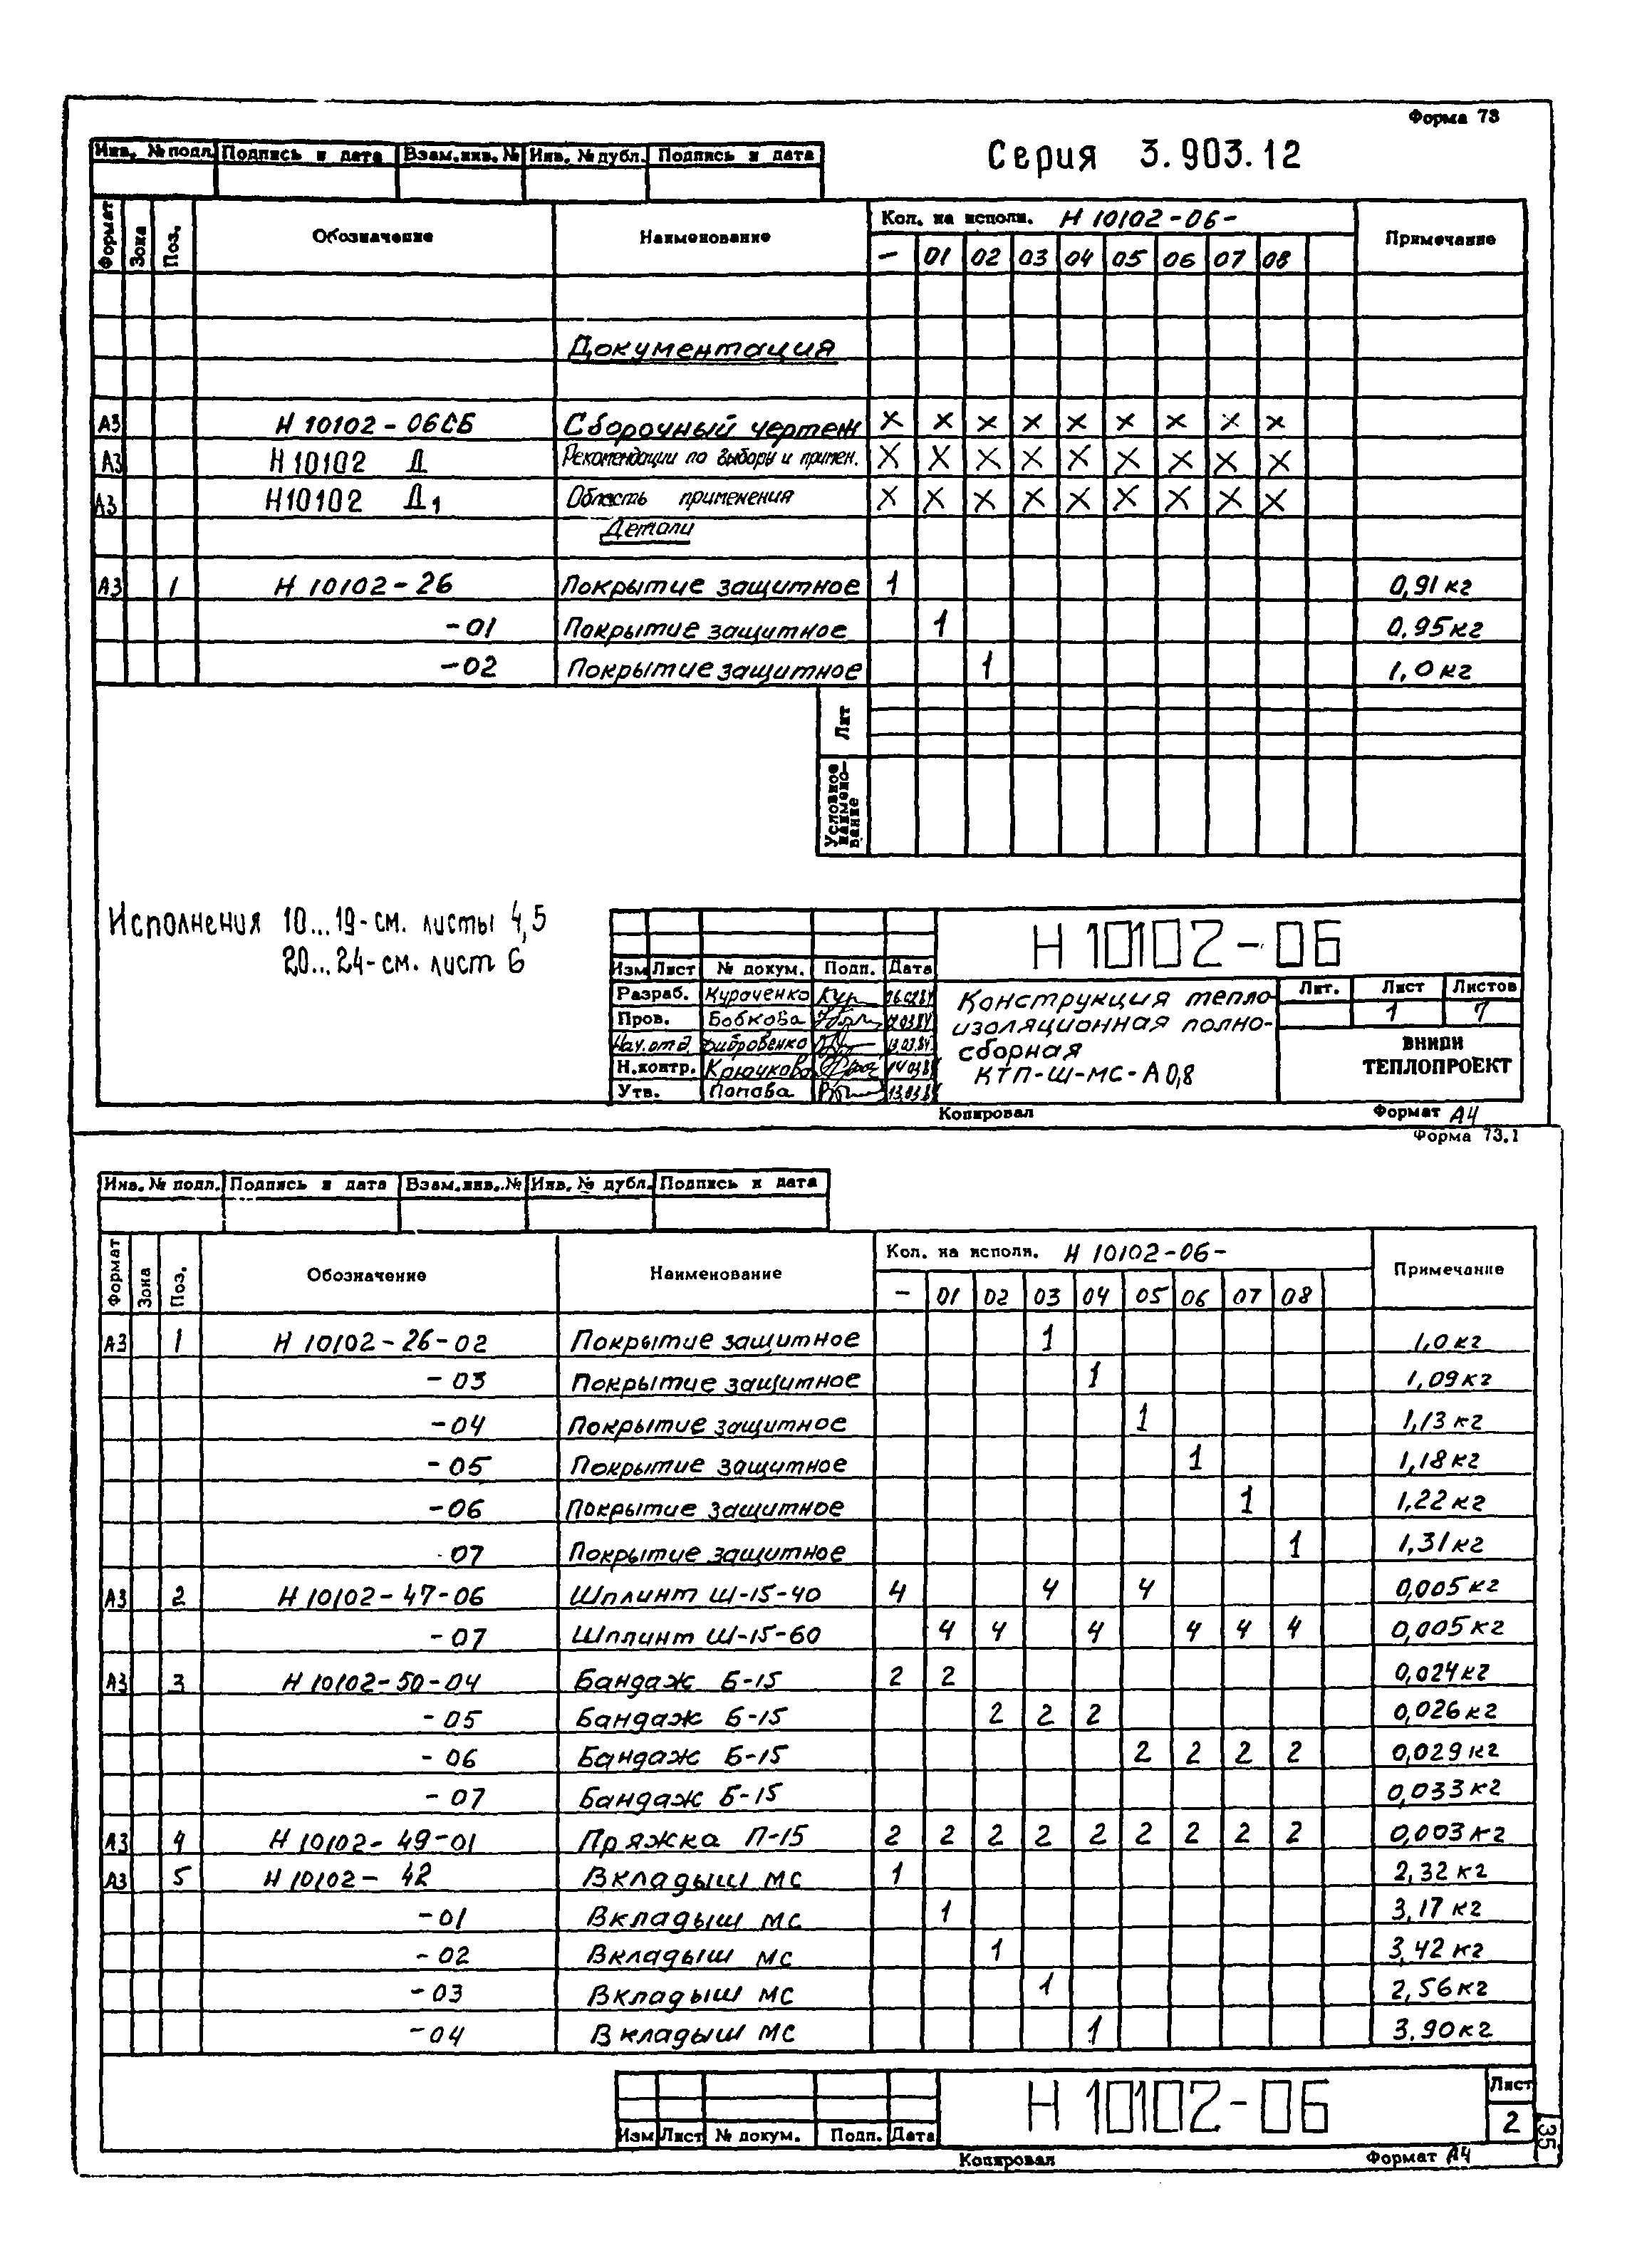 Форма 73
Серия 3.903.12
Инв. № подл. Подпись и дата Взам.инв. № Инв. № дубл. Подпись и дата
Формат Зона Поз. Обозначение Наименование Кол. на исполн. Н 10102-06- Примечание
- 01 02 03 04 05 06 07 08
Документация
А3 Н 10102-06СБ Сборочный чертеж × × × × × × × × ×
А3 Н10102 Д Рекомендации по выбору и примен. × × × × × × × × ×
А3 Н10102 Д1 Область применения × × × × × × × × ×
Детали
А3 1 Н 10102-26 Покрытие защитное 1 0,91 кг
-01 Покрытие защитное 1 0,95 кг
-02 Покрытие защитное 1 1,0 кг
Лит
Условное наименование
Исполнения 10...19-см. листы 4,5
20...24-см. лист 6
Н 10102-06
Изм Лист № докум. Подп. Дата
Разраб. Кураченко
Пров. Бобкова
Нач.отд.
Н.контр. Крючкова
Утв. Попова
Конструкция тепло-
изоляционная полно-
сборная
КТП-Ш-МС-А0,8
Лит. Лист Листов
1 7
ВНИПИ
ТЕПЛОПРОЕКТ
Копировал Формат А4
Форма 73.1
Инв. № подл. Подпись и дата Взам.инв. № Инв. № дубл. Подпись и дата
Формат Зона Поз. Обозначение Наименование Кол. на исполн. Н 10102-06- Примечание
- 01 02 03 04 05 06 07 08
А3 1 Н 10102-26-02 Покрытие защитное 1 1,0 кг
-03 Покрытие защитное 1 1,09 кг
-04 Покрытие защитное 1 1,13 кг
-05 Покрытие защитное 1 1,18 кг
-06 Покрытие защитное 1 1,22 кг
-07 Покрытие защитное 1 1,31 кг
А3 2 Н 10102-47-06 Шплинт Ш-15-40 4 4 4 0,005 кг
-07 Шплинт Ш-15-60 4 4 4 4 4 4 0,005 кг
А3 3 Н 10102-50-04 Бандаж Б-15 2 2 0,024 кг
-05 Бандаж Б-15 2 2 2 0,026 кг
-06 Бандаж Б-15 2 2 2 2 0,029 кг
-07 Бандаж Б-15 0,033 кг
А3 4 Н 10102-49-01 Пряжка П-15 2 2 2 2 2 2 2 2 2 0,003 кг
А3 5 Н 10102-42 Вкладыш МС 1 2,32 кг
-01 Вкладыш МС 1 3,17 кг
-02 Вкладыш МС 1 3,42 кг
-03 Вкладыш МС 1 2,56 кг
-04 Вкладыш МС 1 3.90 кг
Изм Лист № докум. Подп. Дата
Н 10102-06
Лист
2
135
Копировал Формат А4